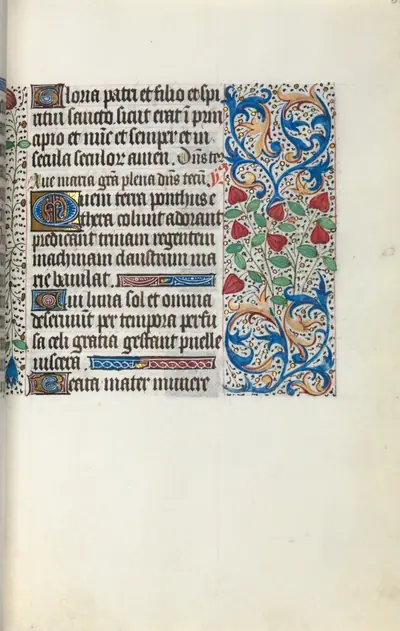 Gloria patri et filio et spi
ritui sancto sicut erat i prin
cipio et nuc et semper et in
secula seculor amen. Dns te
Aue maria gra plena dns tecu
Quem terra ponthus e
thera colunt adorant
predicant trinam regentem
machinam claustrum ma
rie baiulat.
Cui luna sol et omnia
deseruiunt per tempora perfu
sa celi gratia gestant puelle
uiscera.
Beata mater munere